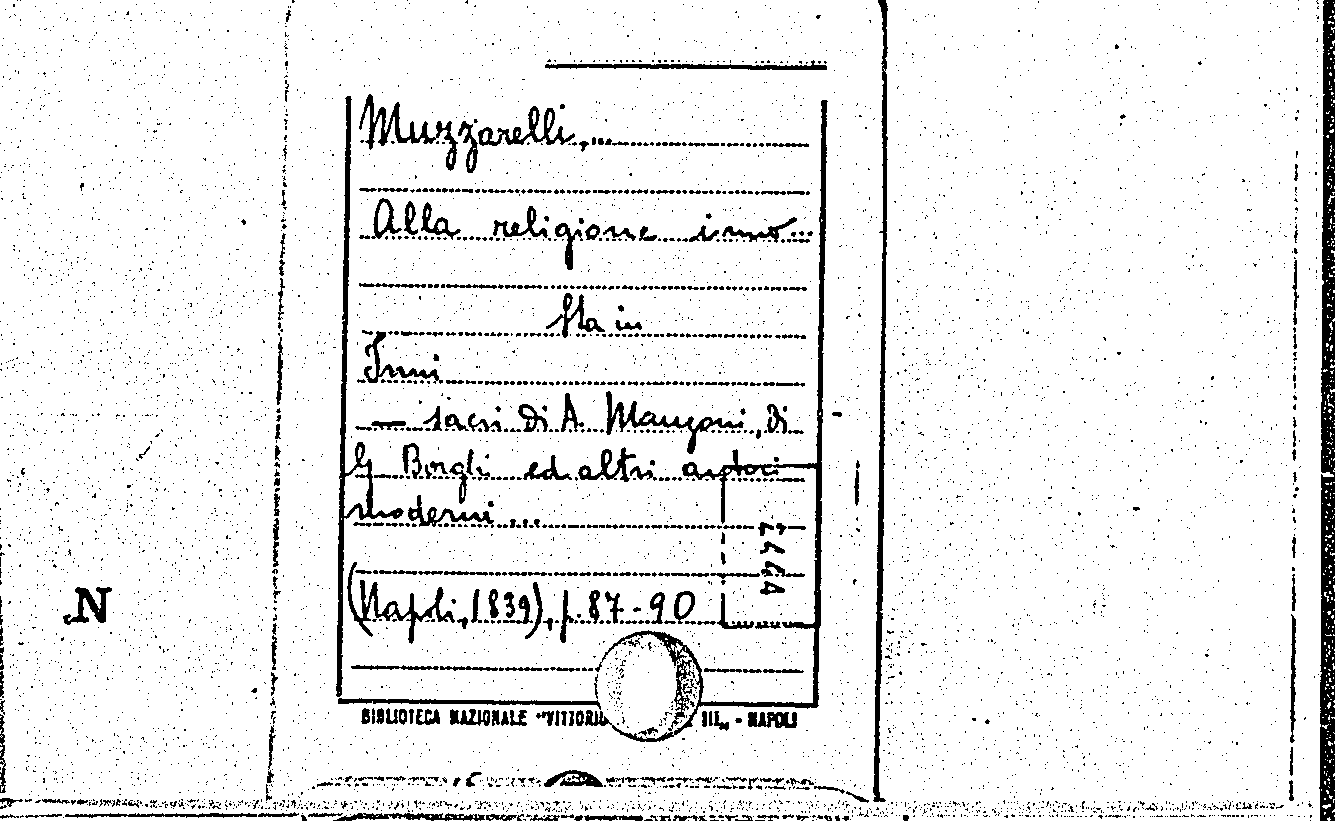 Muzzarelli,...
Alla religione inno...
Sta in
Inni
— sacri di A. Manzoni, di
G Borghi ed altri autori
moderni...
(Napoli, 1839), p. 87-90
N
BIBLIOTECA NAZIONALE "VITTORIO III„ - NAPOLI